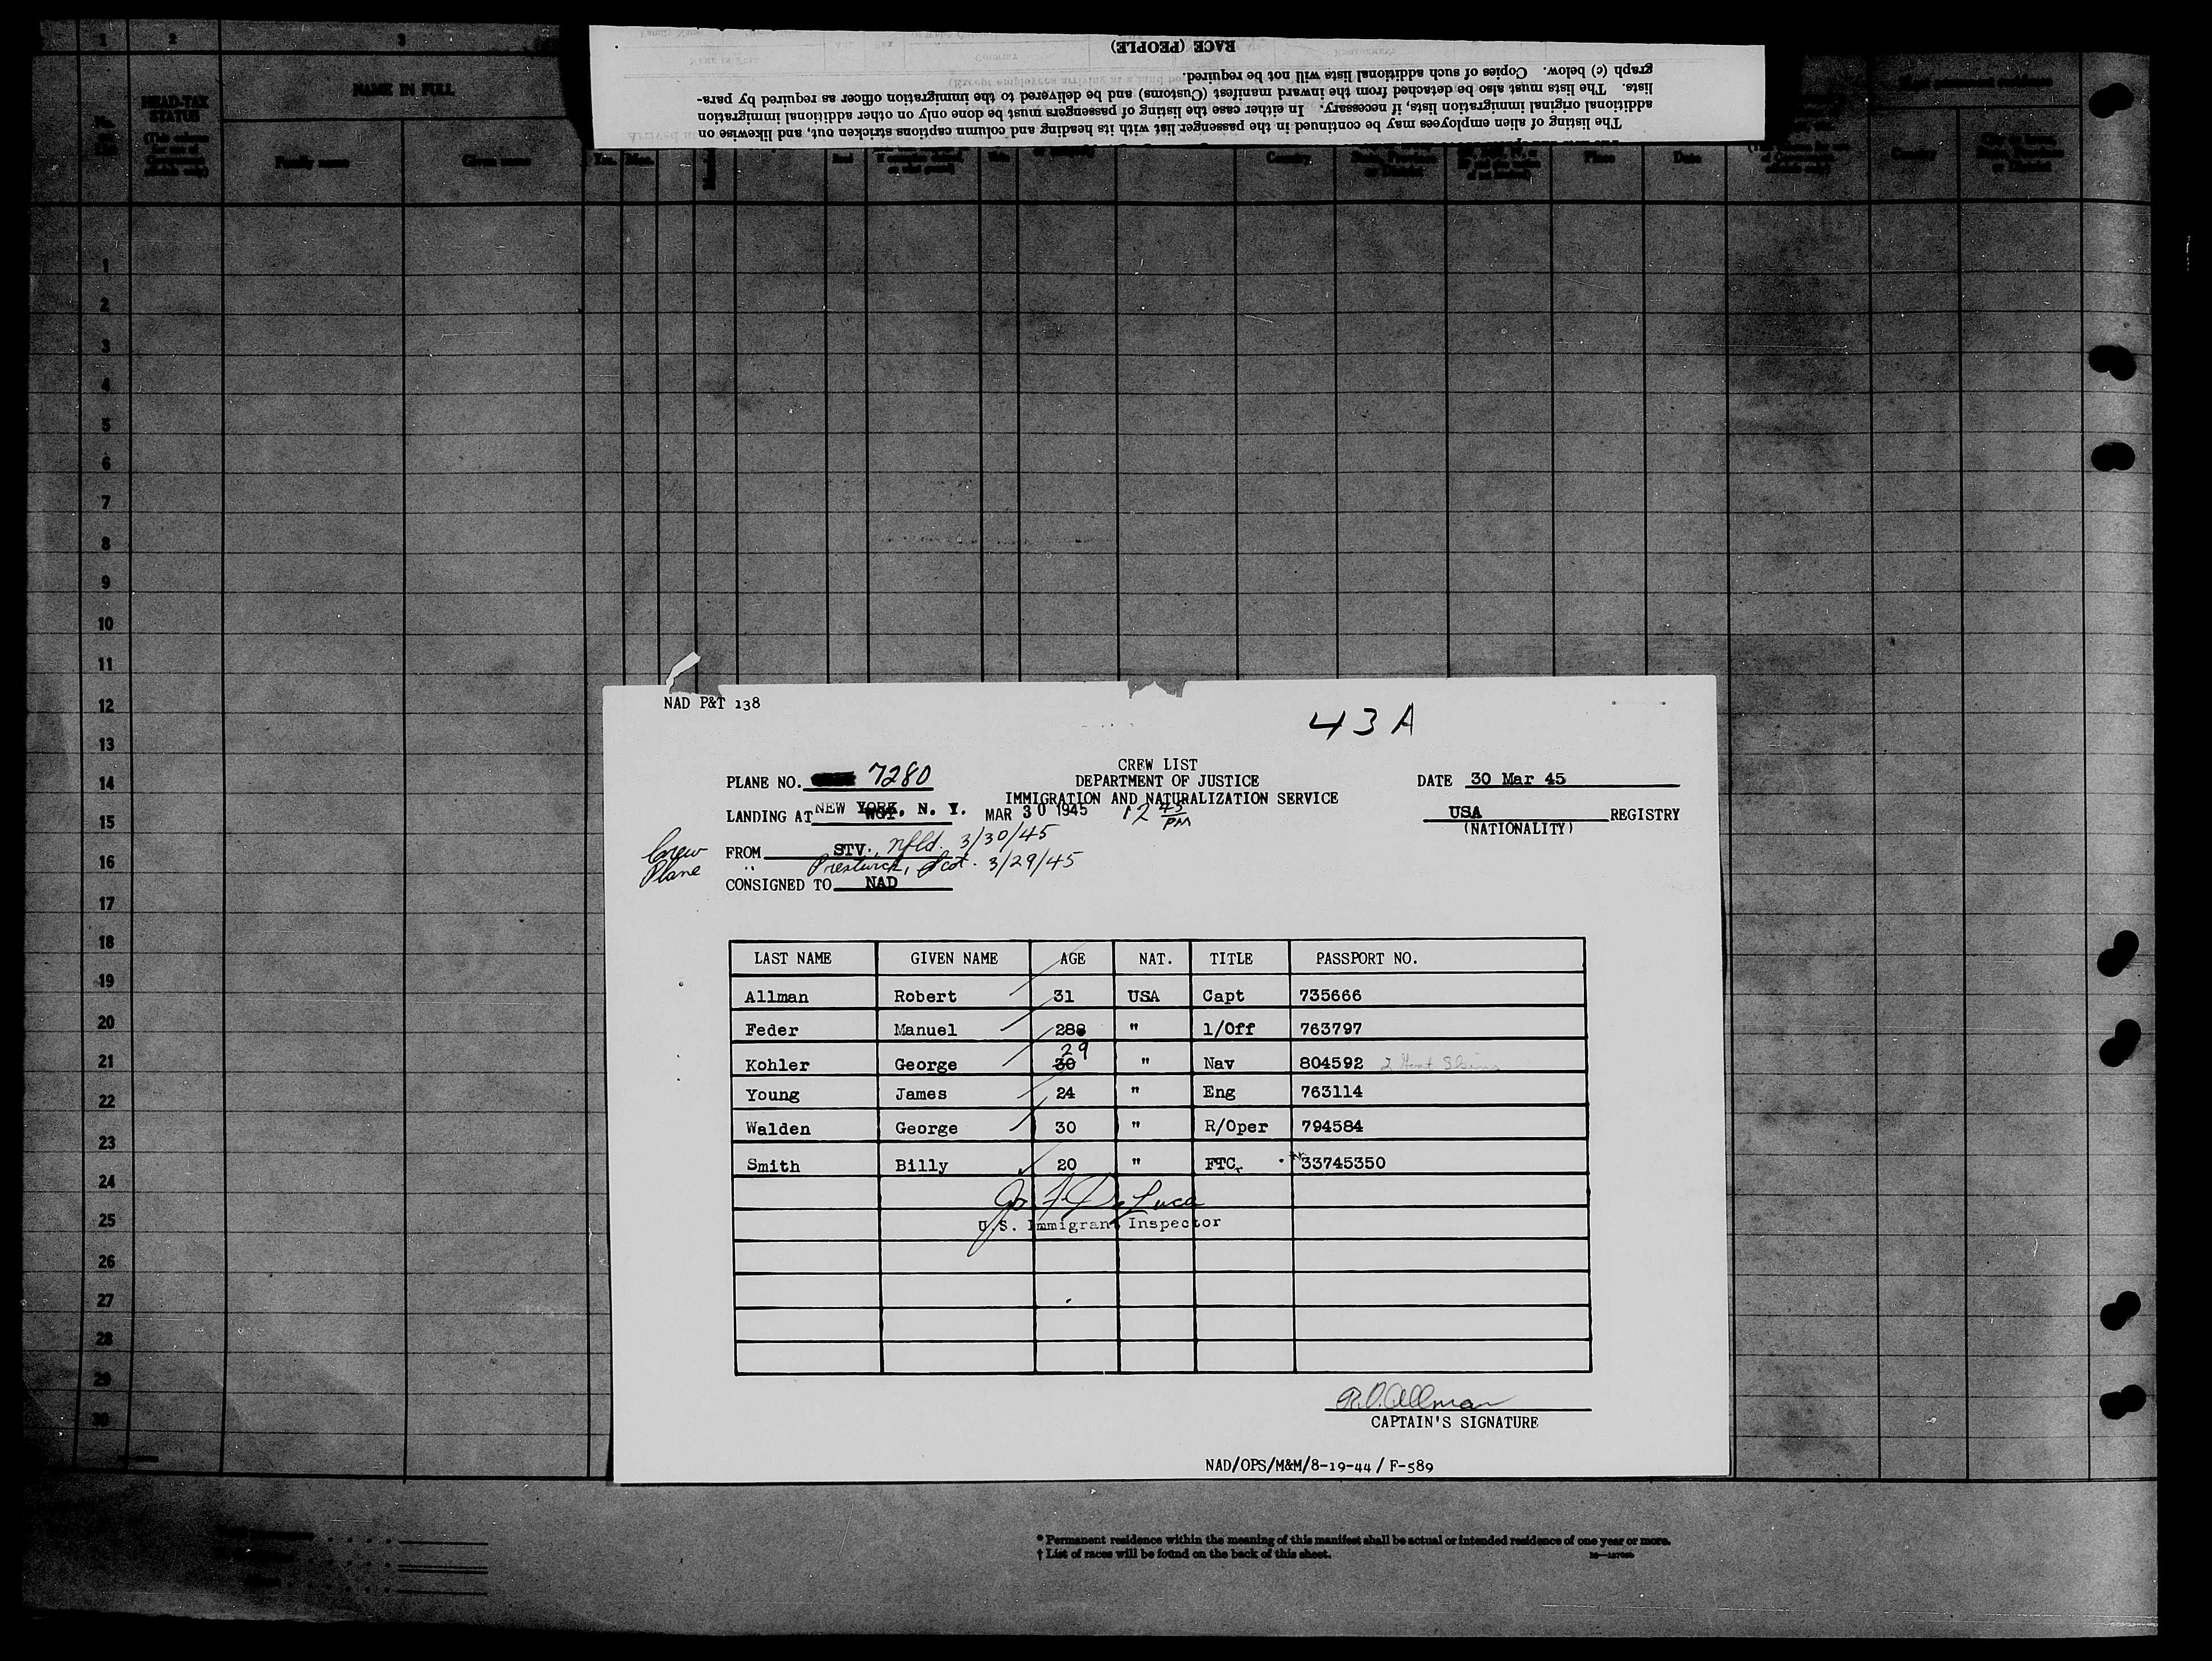 1 2 3
HEAD-TAX STATUS
NAME IN FULL
Family name
Given name
Yrs. Mos.
Read
Country
Place
Date
Country
RACE (PEOPLE)
graph (c) below. Copies of such additional lists will not be required.
lists. The lists must also be detached from the inward manifest (Customs) and be delivered to the immigration officer as required by para-
additional original immigration lists, if necessary. In either case the listing of passengers must be done only on other additional immigration
The listing of alien employees may be continued in the passenger list with its heading and column captions stricken out, and likewise on
1
2
3
4
5
6
7
8
9
10
11
12
13
14
15
16
17
18
19
20
21
22
23
24
25
26
27
28
29
30
NAD P&T 138
43A
CREW LIST
PLANE NO. 7280 DEPARTMENT OF JUSTICE DATE 30 Mar 45
IMMIGRATION AND NATURALIZATION SERVICE
LANDING AT NEW YORK, N. Y. MAR 30 1945 12 45 PM USA REGISTRY
(NATIONALITY)
Crew FROM STV., Nfld. 3/30/45
Plane " Prestwick, Scot. 3/29/45
CONSIGNED TO NAD
LAST NAME GIVEN NAME AGE NAT. TITLE PASSPORT NO.
Allman Robert 31 USA Capt 735666
Feder Manuel 288 " 1/Off 763797
Kohler George 30 29 " Nav 804592
Young James 24 " Eng 763114
Walden George 30 " R/Oper 794584
Smith Billy 20 " FTC 33745350
Jos F De Luca
U.S. Immigrant Inspector
R.D. Allman
CAPTAIN'S SIGNATURE
NAD/OPS/M&M/8-19-44 / F-589
* Permanent residence within the meaning of this manifest shall be actual or intended residence of one year or more.
† List of races will be found on the back of this sheet.